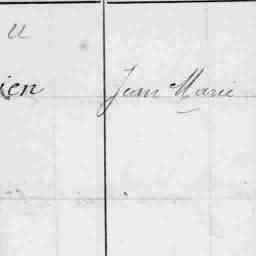 u
ien Jean Marie